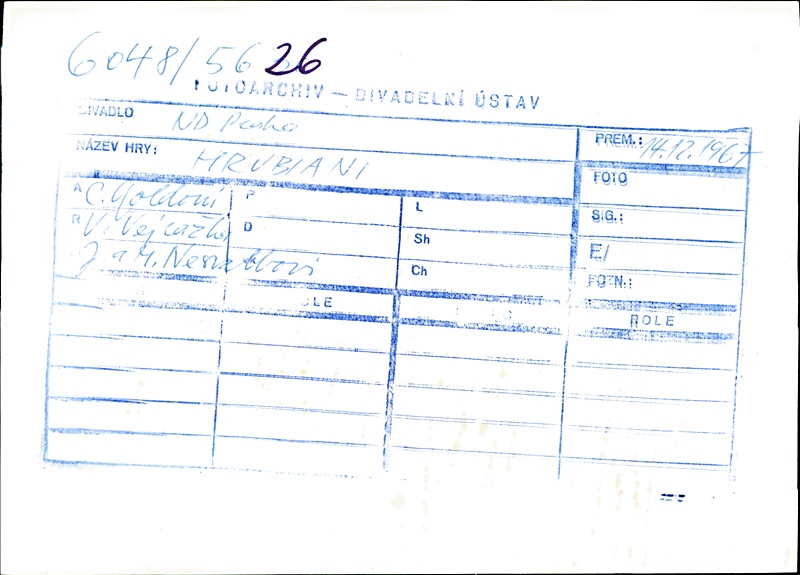 6048/56 26
FOTOARCHIV — DIVADELNÍ ÚSTAV
DIVADLO ND Praha PREM.: 14.12.1967
NÁZEV HRY: HRUBIANI FOTO
A C. Goldoni P L SIG.:
R V. Vejražka D Sh E/
J a M. Nesvatbovi Ch FOTN.:
ROLE ROLE